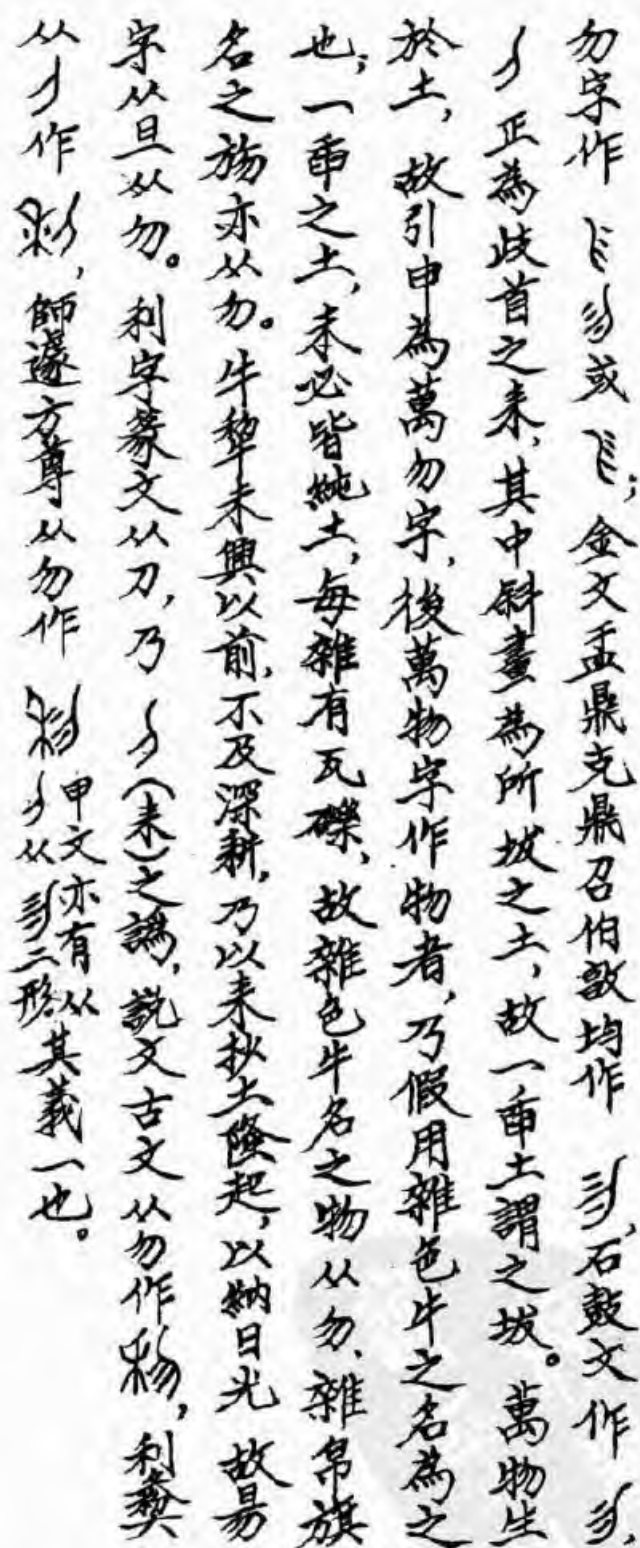 勿字作 或 ；金文盂鼎克鼎召伯𣪘均作 ，石鼓文作 ，
正為歧首之耒，其中斜畫為所坺之土，故一臿土謂之坺。萬物生
於土，故引申為萬勿字，後萬物字作物者，乃假用雜色牛之名為之
也；一臿之土，未必皆純土，每雜有瓦礫，故雜色牛名之物从勿、雜帛旗
名之㫚亦从勿。牛犂未興以前，不及深耕，乃以耒抄土隆起，以納日光 故昜
字从旦从勿。利字篆文从刀，乃 （耒）之譌，說文古文从勿作𥝤，利𣪘
从 作 ，師遽方尊从勿作 甲文亦有从 从 二形 其義一也。